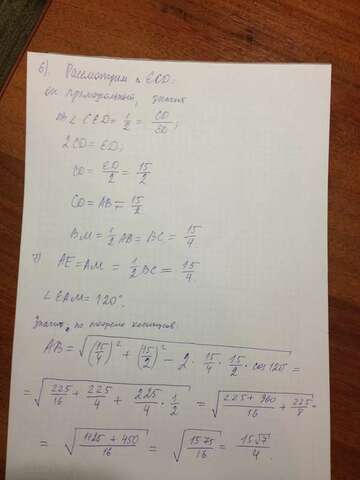 6). Рассмотрим △ECD:
он прямоугольный, значит
sin ∠CED = 1/2 = CD/ED;
2CD = ED;
CD = ED/2 = 15/2
CD = AB = 15/2
BM = 1/2 AB = BC = 15/4
7) AE = AM = 1/2 BC = 15/4.
∠EAM = 120°.
Значит, по теореме косинусов:
AB = √((15/4)² + (15/2)² − 2 · 15/4 · 15/2 · cos120) =
= √(225/16 + 225/4 + 225/4 · 1/2) = √((225 + 900)/16 + 225/8 =
= √((1125 + 450)/16) = √(1575/16) = 15√7/4.